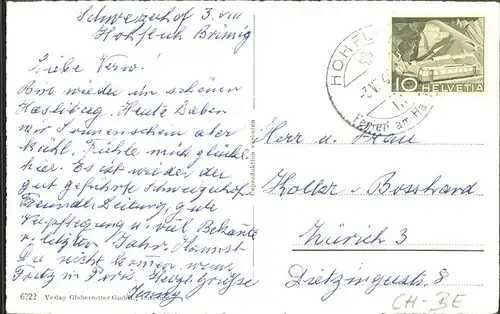 Schweizerhof 3. VIII
Hohfluh Brünig
Liebe
Bin wieder im schönen
Hasliberg. Heute haben
wir Sonnenschein aber
kühl. Fühle mich glückl.
hier. Es ist wieder der
gut geführte Schweizerhof.
Freundl. Leitung, gute
Verpflegung u. viel Bekannte
v. letzten Jahr. Kannst
Du nicht kommen, wenn
Fritz in Paris. Herzl. Grüsse
Jenny
6722 Verlag Globetrotter GmbH.
Reproduction verboten
HOHFL
Ferien am Ha
10 HELVETIA
Herr u. Frau
Koller-Bosshard
Zürich 3
Dietzingerstr. 8
CH-BE